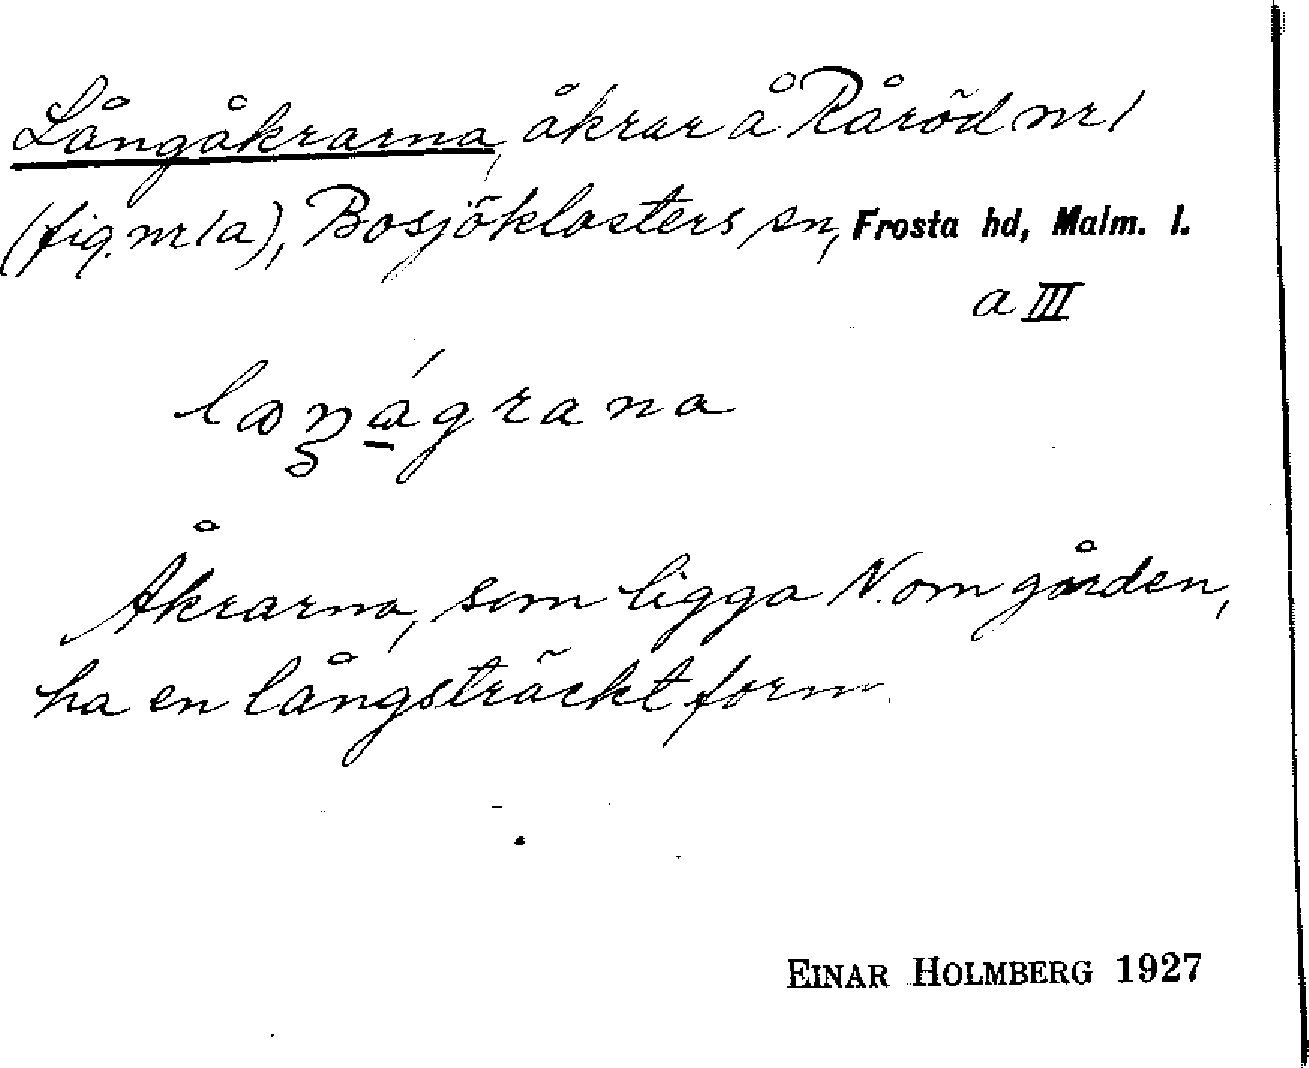 Långåkrarna, åkrar å Råröd nr 1
(fig. nr 1a), Bosjöklosters sn, Frosta hd, Malm. l.
a III
Åkrarna, som ligga N. om gården,
ha en långsträckt form.
EINAR HOLMBERG 1927